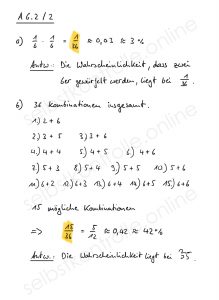 A 6.2 / 2
a) 1/6 · 1/6 = 1/36 ≈ 0,03 ≈ 3 %
Antw.: Die Wahrscheinlichkeit, dass zwei
6er gewürfelt werden, liegt bei 1/36.
b) 36 Kombinationen insgesamt.
1) 2+6
2) 3+5 3) 3+6
4) 4+4 5) 4+5 6) 4+6
7) 5+3 8) 5+4 9) 5+5 10) 5+6
11) 6+2 12) 6+3 13) 6+4 14) 6+5 15) 6+6
15 mögliche Kombinationen
=> 15/36 = 5/12 ≈ 0,42 ≈ 42 %
Antw.: Die Wahrscheinlichkeit liegt bei
selbstkontrolle.online